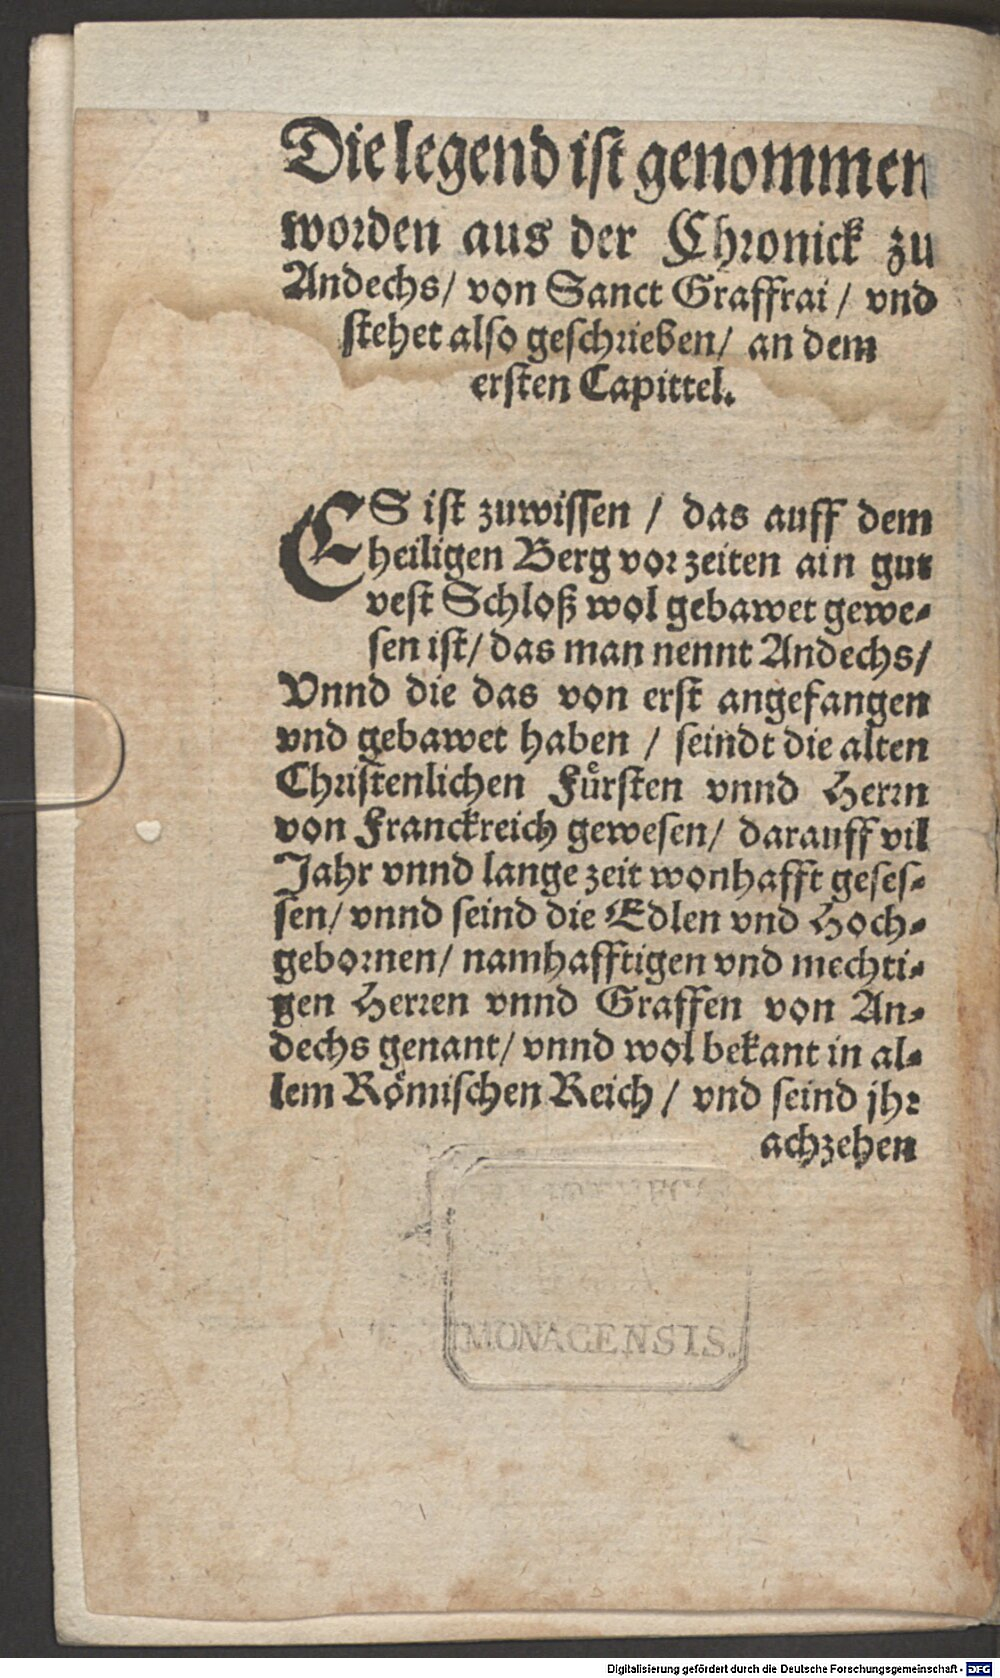 Die legend ist genommen
worden aus der Chronick zu
Andechs/ von Sanct Graffrai / vnd
stehet also geschrieben/ an dem
ersten Capittel.
ES ist zuwissen / das auff dem
heiligen Berg vor zeiten ain gut
vest Schloß wol gebawet gewe⸗
sen ist/ das man nennt Andechs/
Vnnd die das von erst angefangen
vnd gebawet haben / seindt die alten
Christenlichen Fuͤrsten vnnd Herrn
von Franckreich gewesen/ darauff vil
Jahr vnnd lange zeit wonhafft geses⸗
sen/ vnnd seind die Edlen vnd Hoch⸗
gebornen/ namhafftigen vnd mechti⸗
gen Herren vnnd Graffen von An⸗
dechs genant/ vnnd wol bekant in al⸗
lem Roͤmischen Reich / vnd seind jhr
achzehen
MONACENSIS.
Digitalisierung gefördert durch die Deutsche Forschungsgemeinschaft - DFG